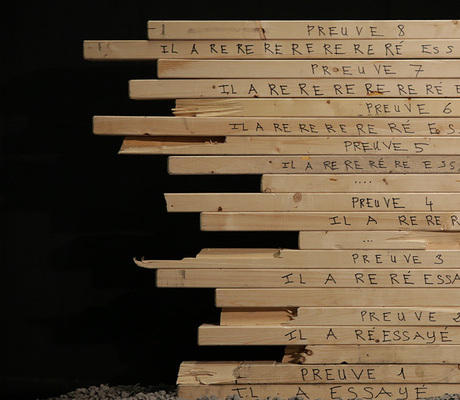 PREUVE 8
IL A RE RE RE RE RE RE RÉ ESS
PREUVE 7
IL A RE RE RE RE RE RÉ E
PREUVE 6
IL A RE RE RE RE RÉ ES
PREUVE 5
IL A RE RE RÉ RE ESS
....
PREUVE 4
IL A RE RE R
...
PREUVE 3
IL A RE RÉ ESSA
PREUVE 2
IL A RÉESSAYÉ
PREUVE 1
IL A ESSAYÉ